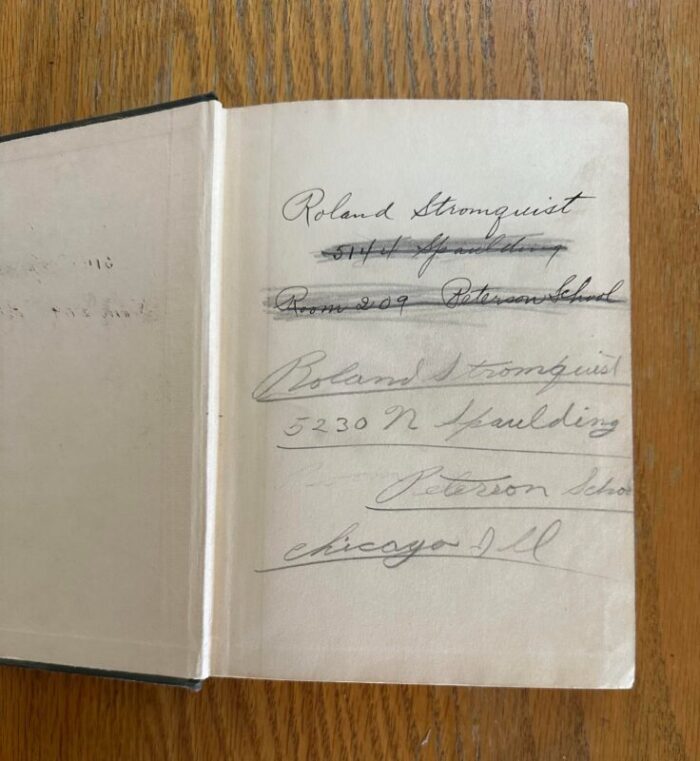 Roland Stromquist
5144 Spaulding
Room 209 Peterson School
Roland Stromquist
5230 N Spaulding
Peterson Schoo
chicago Ill